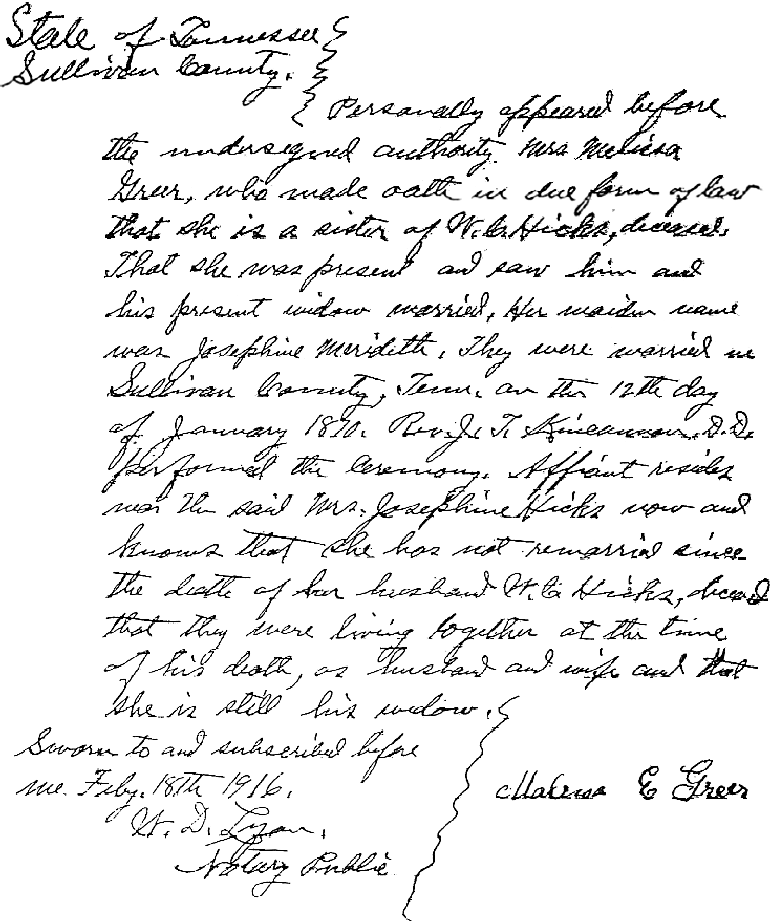 State of Tennessee
Sullivan County.
Personally appeared before
the undersigned authority Mrs Melissa
Greer, who made oath in due form of law
that she is a sister of W. C. Hicks, deceased.
That she was present and saw him and
his present widow married. Her maiden name
was Josephine Merideth. They were married in
Sullivan County, Tenn. on the 12th day
of January 1870. Rev. J. T. Kincannon, D.D.
performed the ceremony. Affiant resides
near the said Mrs. Josephine Hicks now and
knows that she has not remarried since
the death of her husband W. C. Hicks, deceased
that they were living together at the time
of his death, as husband and wife and that
she is still his widow.
Sworn to and subscribed before
me. Feby. 18th 1916.
E Greer
W. D. Lyon.
Notary Public